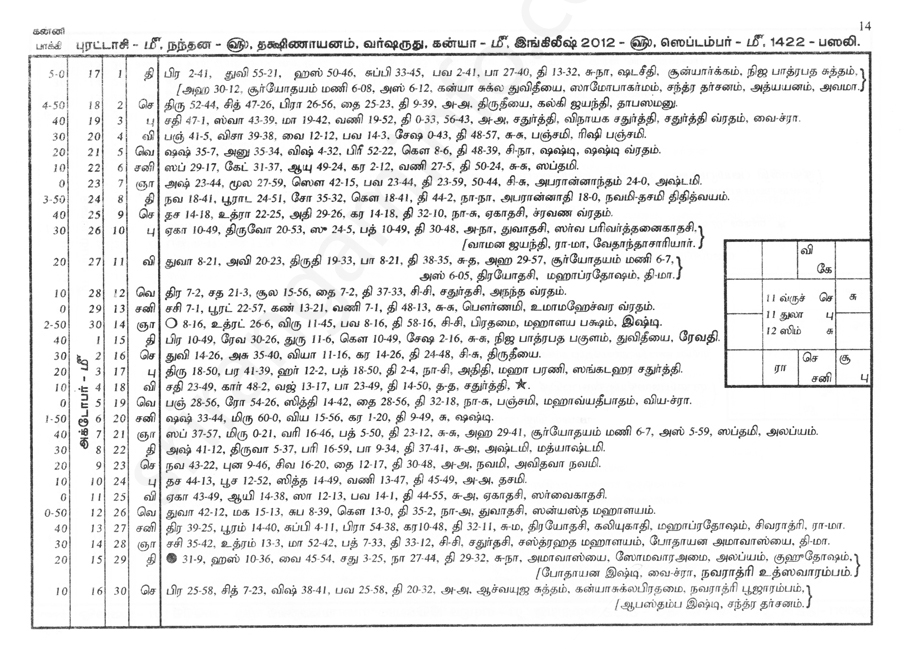 14
கன்னி
பாக்கி புரட்டாசி - மீ, நந்தன - ௵, தக்ஷிணாயனம், வர்ஷருது, கன்யா - மீ, இங்கிலீஷ் 2012 - ௵, ஸெப்டம்பர் - மீ, 1422 - பஸலி.
5-0 17 1 தி பிர 2-41, துவி 55-21, ஹஸ் 50-46, சுப்பி 33-45, பவ 2-41, பா 27-40, தி 13-32, சு-நா, ஷடசீதி, சூன்யார்க்கம், நிஜ பாத்ரபத சுத்தம்,
[அஹ 30-12, சூர்யோதயம் மணி 6-08, அஸ் 6-12, கன்யா சுக்ல துவிதீயை, ஸாமோபாகர்மம், சந்த்ர தர்சனம், அத்யயனம், அவமா.
4-50 18 2 செ திரு 52-44, சித் 47-26, பிரா 26-56, தை 25-23, தி 9-39, அ-அ, திருதீயை, கல்கி ஜயந்தி, தாபஸமனு.
40 19 3 பு சதி 47-1, ஸ்வா 43-39, மா 19-42, வணி 19-52, தி 0-33, 56-43, அ-அ, சதுர்த்தி, விநாயக சதுர்த்தி, சதுர்த்தி வ்ரதம், வை-ச்ரா.
30 20 4 வி பஞ் 41-5, விசா 39-38, வை 12-12, பவ 14-3, சேஷ 0-43, தி 48-57, சு-சு, பஞ்சமி, ரிஷி பஞ்சமி.
20 21 5 வெ ஷஷ் 35-7, அனு 35-34, விஷ் 4-32, பிரீ 52-22, கௌ 8-6, தி 48-39, சி-நா, ஷஷ்டி, ஷஷ்டி வ்ரதம்.
10 22 6 சனி ஸப் 29-17, கேட் 31-37, ஆயு 49-24, கர 2-12, வணி 27-5, தி 50-24, சு-சு, ஸப்தமி.
0 23 7 ஞா அஷ் 23-44, மூல 27-59, ஸௌ 42-15, பவ 23-44, தி 23-59, 50-44, சி-சு, அபரான்னாந்தம் 24-0, அஷ்டமி.
3-50 24 8 தி நவ 18-41, பூராட 24-51, சோ 35-32, கௌ 18-41, தி 44-2, நா-நா, அபரான்னாதி 18-0, நவமி-தசமி திதித்வயம்.
40 25 9 செ தச 14-18, உத்ரா 22-25, அதி 29-26, கர 14-18, தி 32-10, நா-சு, ஏகாதசி, ச்ரவண வ்ரதம்.
30 26 10 பு ஏகா 10-49, திருவோ 20-53, ஸு 24-5, பத் 10-49, தி 30-48, அ-நா, துவாதசி, ஸர்வ பரிவர்த்தனைகாதசி,
[வாமன ஜயந்தி, ரா-மா, வேதாந்தாசாரியார்.
20 27 11 வி துவா 8-21, அவி 20-23, திருதி 19-33, பா 8-21, தி 38-35, சு-த, அஹ 29-57, சூர்யோதயம் மணி 6-7,
அஸ் 6-05, திரயோதசி, மஹாப்ரதோஷம், தி-மா.
10 28 12 வெ திர 7-2, சத 21-3, சூல 15-56, தை 7-2, தி 37-33, சி-சி, சதுர்தசி, அநந்த வ்ரதம்.
0 29 13 சனி சசி 7-1, பூரட் 22-57, கண் 13-21, வணி 7-1, தி 48-13, சு-சு, பௌர்ணமி, உமாமஹேச்வர வ்ரதம்.
2-50 30 14 ஞா ○ 8-16, உத்ரட் 26-6, விரு 11-45, பவ 8-16, தி 58-16, சி-சி, பிரதமை, மஹாளய பக்ஷம், இஷ்டி.
40 1 15 தி பிர 10-49, ரேவ 30-26, துரு 11-6, கௌ 10-49, சேஷ 2-16, சு-சு, நிஜ பாத்ரபத பகுளம், துவிதீயை, ரேவதி.
30 2 16 செ துவி 14-26, அசு 35-40, வியா 11-16, கர 14-26, தி 24-48, சி-சு, திருதீயை.
20 3 17 பு திரு 18-50, பர 41-39, ஹர் 12-2, பத் 18-50, தி 2-4, நா-சி, அதிதி, மஹா பரணி, ஸங்கடஹர சதுர்த்தி.
10 4 18 வி சதி 23-49, கார் 48-2, வஜ் 13-17, பா 23-49, தி 14-50, த-த, சதுர்த்தி, ★.
0 5 19 வெ பஞ் 28-56, ரோ 54-26, ஸித்தி 14-42, தை 28-56, தி 32-18, நா-சு, பஞ்சமி, மஹாவ்யதீபாதம், விய-ச்ரா.
1-50 6 20 சனி ஷஷ் 33-44, மிரு 60-0, விய 15-56, கர 1-20, தி 9-49, சு, ஷஷ்டி.
40 7 21 ஞா ஸப் 37-57, மிரு 0-21, வரி 16-46, பத் 5-50, தி 23-12, சு-சு, அஹ 29-41, சூர்யோதயம் மணி 6-7, அஸ் 5-59, ஸப்தமி, அலப்யம்.
30 8 22 தி அஷ் 41-12, திருவா 5-37, பரி 16-59, பா 9-34, தி 37-41, சு-அ, அஷ்டமி, மத்யாஷ்டமி.
20 9 23 செ நவ 43-22, புன 9-46, சிவ 16-20, தை 12-17, தி 30-48, அ-அ, நவமி, அவிதவா நவமி.
10 10 24 பு தச 44-13, பூச 12-52, ஸித்த 14-49, வணி 13-47, தி 45-49, அ-அ, தசமி.
0 11 25 வி ஏகா 43-49, ஆயி 14-38, ஸா 12-13, பவ 14-1, தி 44-55, சு-அ, ஏகாதசி, ஸர்வைகாதசி.
0-50 12 26 வெ துவா 42-12, மக 15-13, சுப 8-39, கௌ 13-0, தி 35-2, நா-அ, துவாதசி, ஸன்யஸ்த மஹாளயம்.
40 13 27 சனி திர 39-25, பூரம் 14-40, சுப்பி 4-11, பிரா 54-38, கர10-48, தி 32-11, சு-ம, திரயோதசி, கலியுகாதி, மஹாப்ரதோஷம், சிவராத்ரி, ரா-மா.
30 14 28 ஞா சசி 35-42, உத்ரம் 13-3, மா 52-42, பத் 7-33, தி 33-12, சி-சி, சதுர்தசி, சஸ்த்ரஹத மஹாளயம், போதாயன அமாவாஸ்யை, தி-மா.
20 15 29 தி ● 31-9, ஹஸ் 10-36, வை 45-54, சது 3-25, நா 27-44, தி 29-32, சு-நா, அமாவாஸ்யை, ஸோமவாரஅமை, அலப்யம், குஹுதோஷம்,
[போதாயன இஷ்டி, வை-ச்ரா, நவராத்ரி உத்ஸவாரம்பம்.
10 16 30 செ பிர 25-58, சித் 7-23, விஷ் 38-41, பவ 25-58, தி 20-32, அ-அ, ஆச்வயுஜ சுத்தம், கன்யாசுக்லபிரதமை, நவராத்ரி பூஜாரம்பம்,
[ஆபஸ்தம்ப இஷ்டி, சந்த்ர தர்சனம்.
அக்டோபர் - மீ
வி
கே
11 வ்ருச் செ சு
11 துலா பு
12 ஸிம் சு
ரா செ சூ
சனி பு